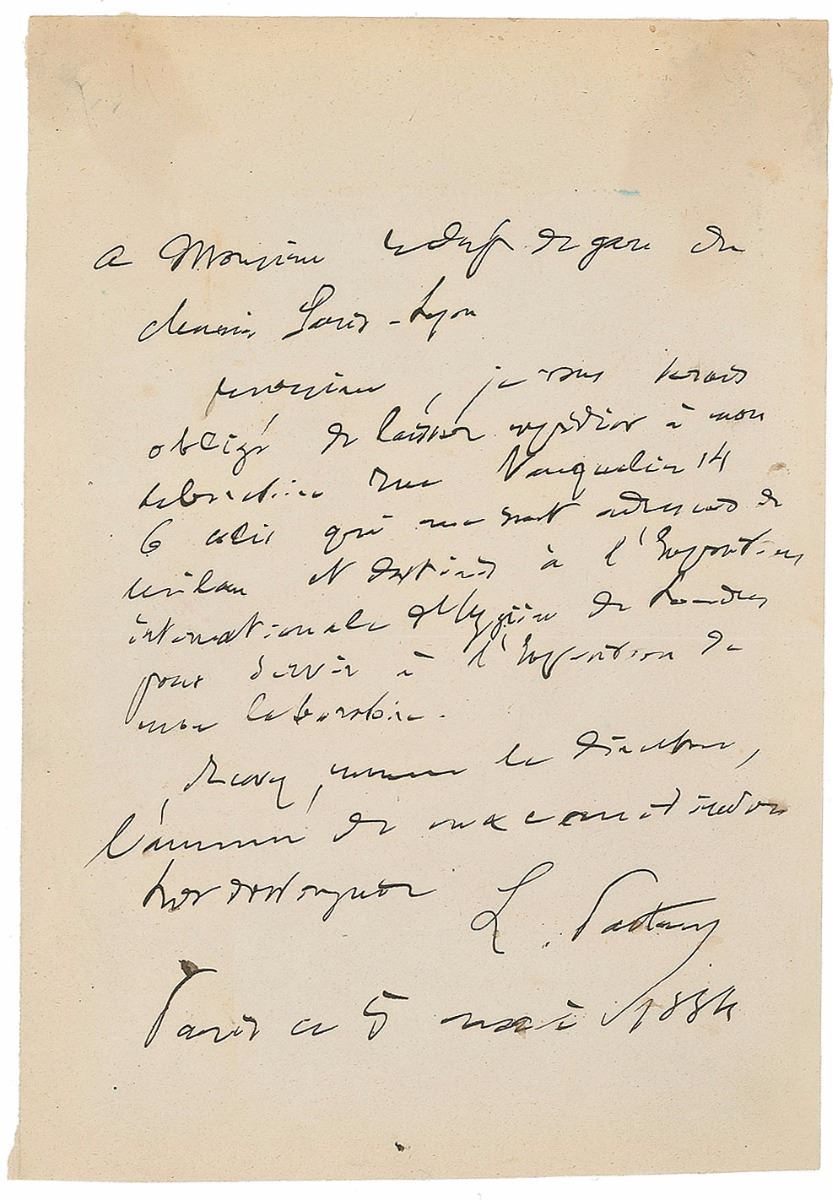 A Monsieur le chef de gare du
chemin Paris-Lyon
Monsieur, je vous serais
obligé de laisser expédier à mon
laboratoire rue Vauquelin 14
6 colis qui me sont adressés de
Milan et destinés à l'Exposition
internationale d'Hygiène de Londres
pour servir à l'Exposition de
mon laboratoire.
le Directeur,
l'assurance de ma considération
très distinguée
L. Pasteur
Paris ce 5 mai 1884